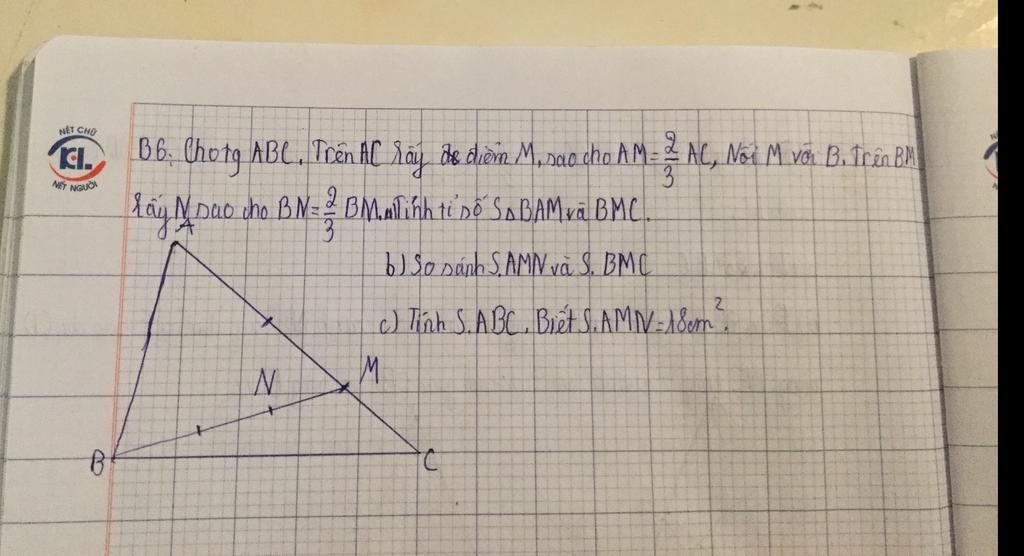 NÉT CHỮ
KL
NẾT NGƯỜI
B6. Cho tg ABC. Trên AC lấy điểm M, sao cho AM = 2/3 AC, Nối M với B. Trên BM
lấy N sao cho BN = 2/3 BM. a) Tính tỉ số S△ BAM và BMC.
b) So sánh S.AMN và S. BMC
c) Tính S.ABC. Biết S.AMN = 18cm².
A
M
N
B
C